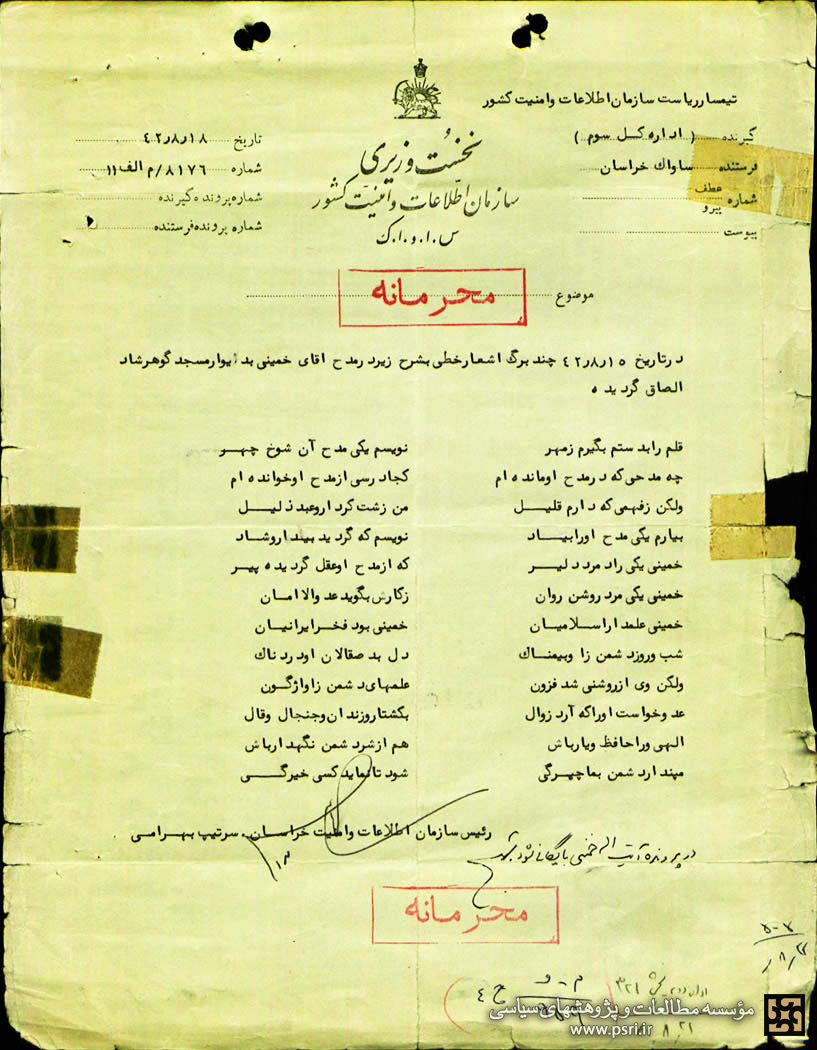 تیمسار ریاست سازمان اطلاعات وامنیت کشور
گیرنده ( اداره کل سوم )
فرستنده ساواک خراسان
شماره عطف
پیرو
پیوست
نخست وزیری
سازمان اطلاعات و امنیت کشور
س.ا.و.ا.ک
تاریخ ۴۲٫۸٫۱۸
شماره ۸۱۷۶/م الف ۱۱
شماره پرونده گیرنده
شماره پرونده فرستنده
موضوع
محرمانه
در تاریخ ۴۲٫۸٫۱۵ چند برگ اشعار خطی بشرح زیر در مدح اقای خمینی بدیوار مسجد گوهرشاد
الصاق گردیده
قلم را بدستم بگیرم زمهر نویسم یکی مدح آن شوخ چهر
چه مدحی که در مدح او مانده ام کجا درسی از مدح او خوانده ام
ولکن زفهمی که دارم قلیل من زشت کردار و عبد ذلیل
بیارم یکی مدح او را بیاد نویسم که گردید بیندار و شاد
خمینی یکی راد مرد دلیر که از مدح او عقل گردیده پیر
خمینی یکی مرد روشن روان زکارش بگوید عدو الامان
خمینی علمدار اسلامیان خمینی بود فخر ایرانیان
شب و روز دشمن زا و بیمناک دل بد صقالان او دردناک
ولکن وی از روشنی شد فزون علمهای دشمن زا واژگون
عدو خواست او را که آرد زوال بکشتار و زندان و جنجال وقال
الهی ورا حافظ و یار باش هم از شر دشمن نگهدار باش
مپندار دشمن بما چیرگی شود تا نماید کسی خیرگی
رئیس سازمان اطلاعات وامنیت خراسان . سرتیپ بهرامی
در پرونده آیت اله خمینی بایگانی شود
محرمانه
م - و
ح ۴
۳۲۱
۸٫۲۱
مؤسسه مطالعات و پژوهشهای سیاسی
www.psri.ir